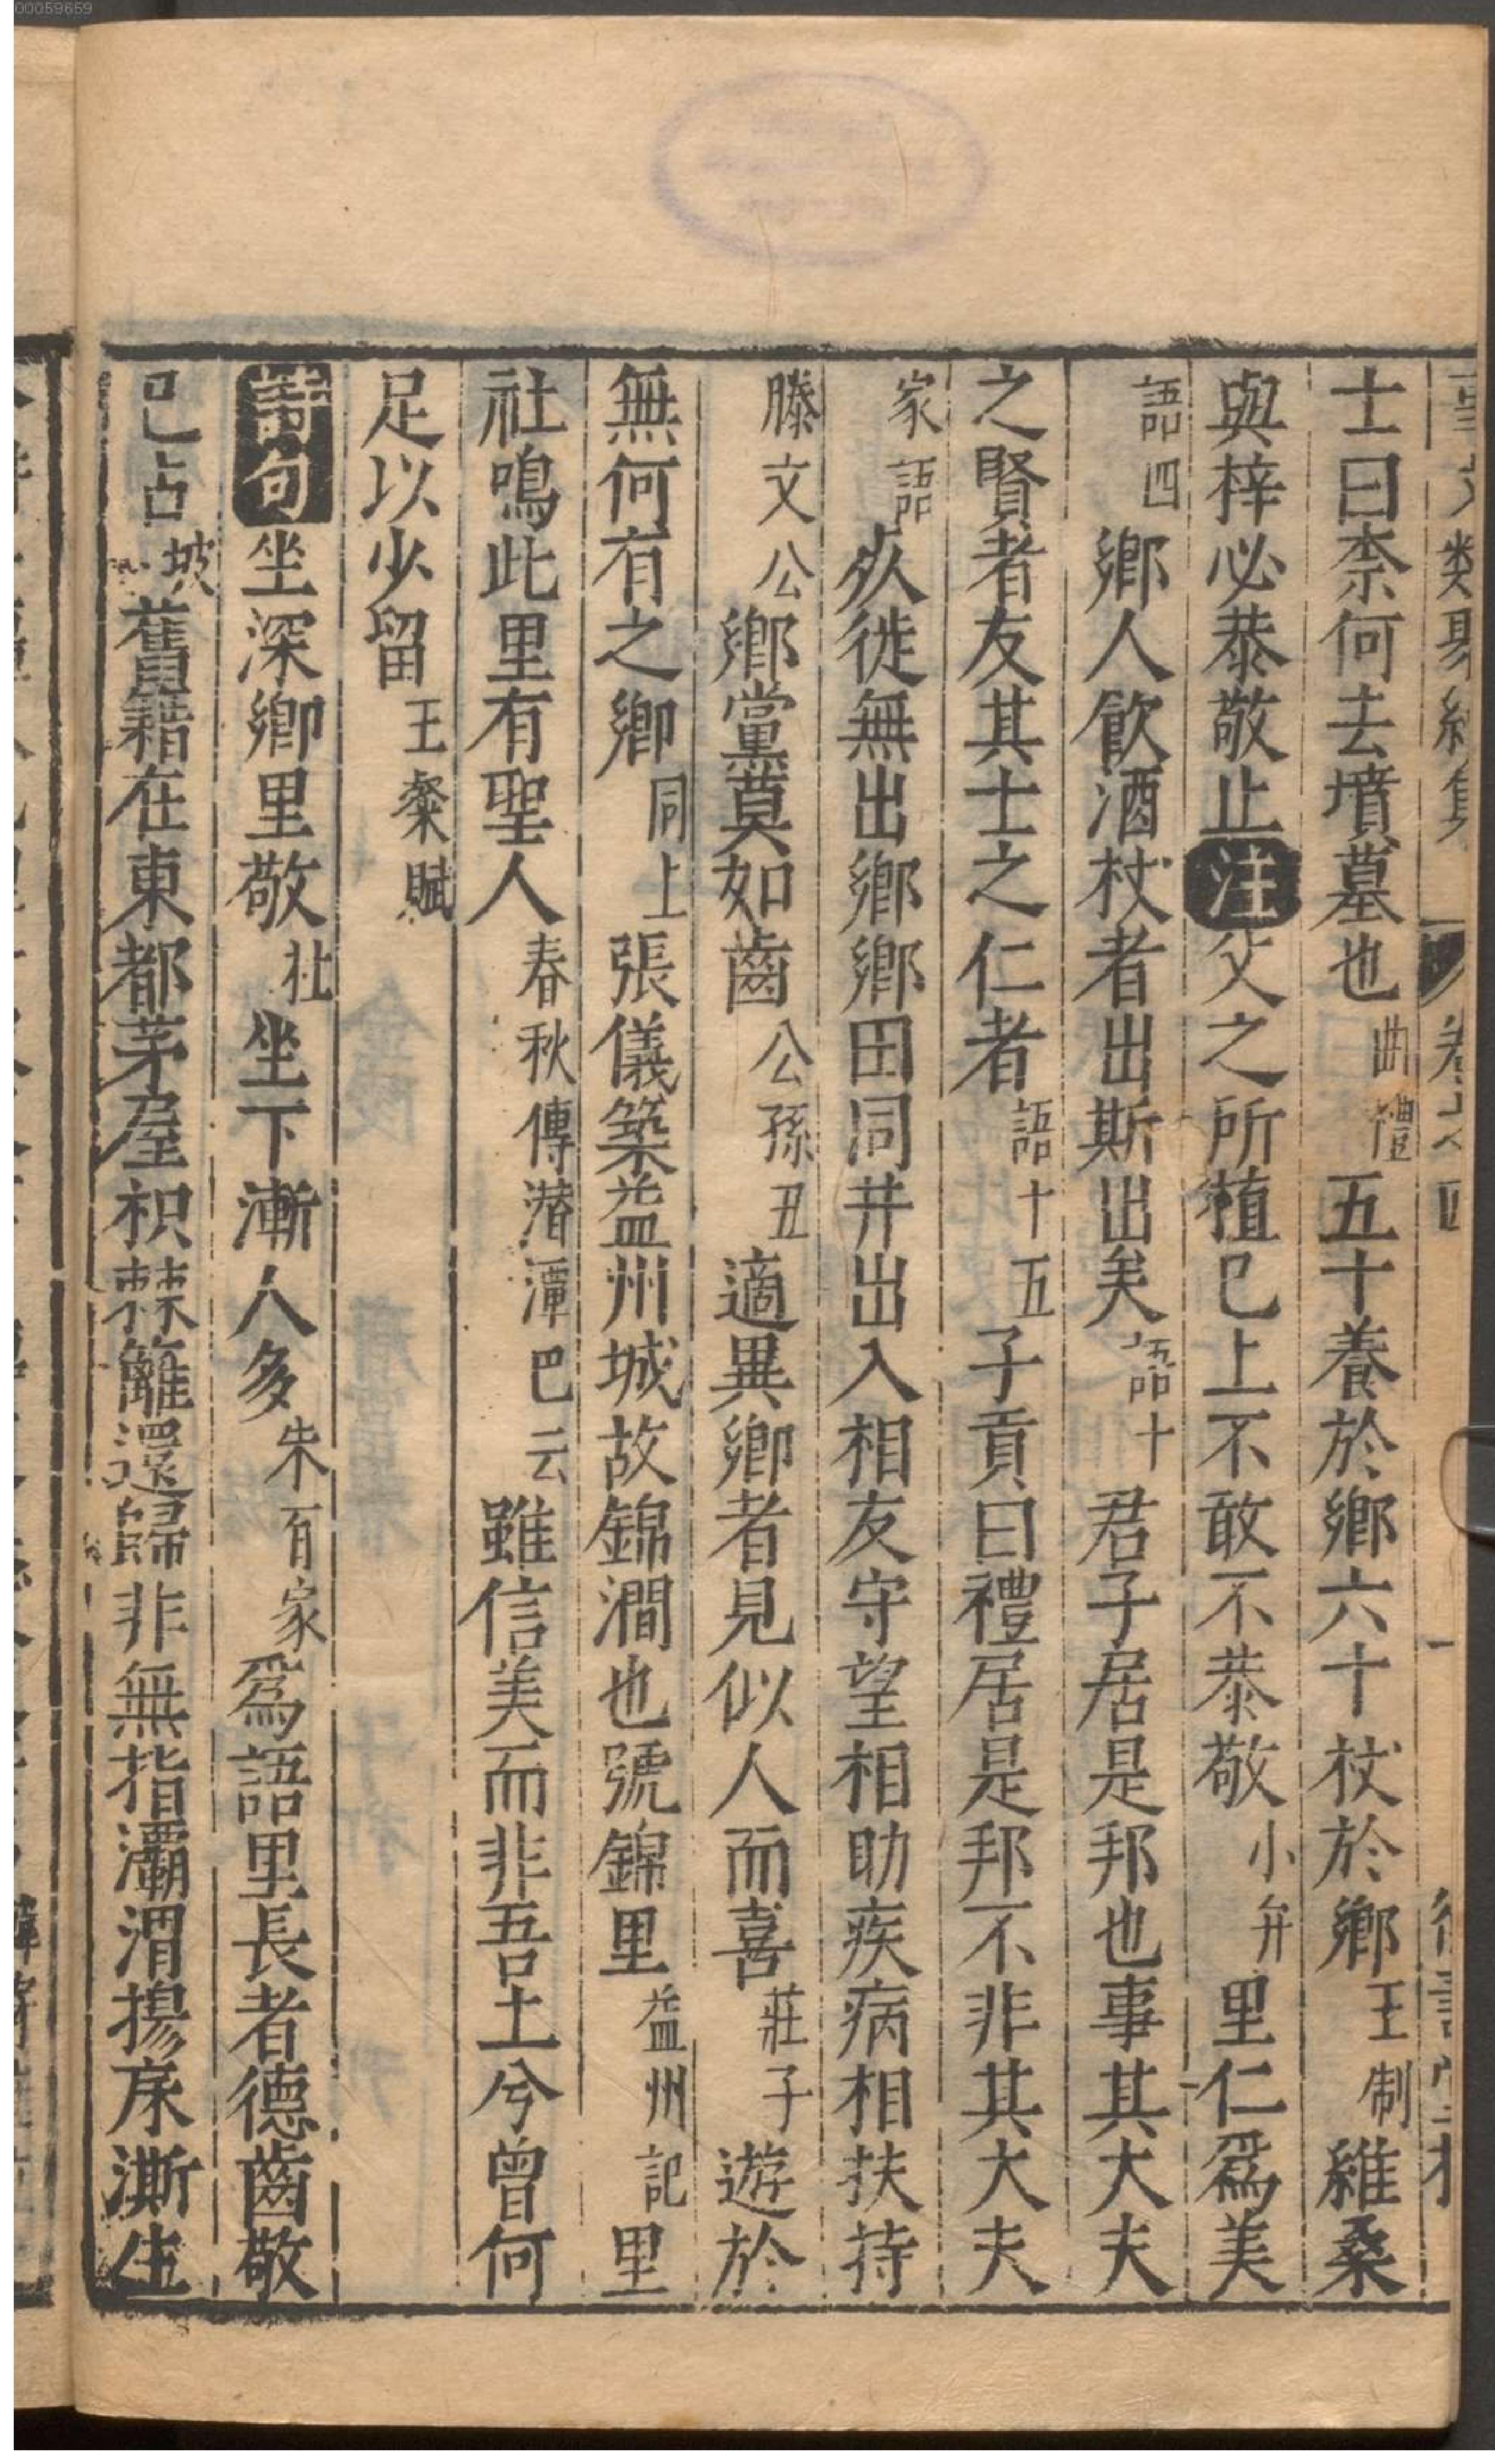 00059659
士曰柰何去墳墓也曲禮五十養於鄉六十杖於鄉王制維桑
與梓必恭敬止注父之所植已上不敢不恭敬小弁里仁爲美
語四鄉人飲酒杖者出斯出矣語十君子居是邦也事其大夫
之賢者友其士之仁者語十五子貢曰禮居是邦不非其大夫
家語死徙無出鄉鄉田同井出入相友守望相助疾病相扶持
滕文公鄉黨莫如齒公孫丑適異鄉者見似人而喜莊子遊於
無何有之鄉同上張儀築益州城故錦澗也號錦里益州記里
社鳴此里有聖人春秋傳潛潭巴云雖信美而非吾土兮曾何
足以少留王粲賦
詩句坐深鄉里敬杜坐下漸人多朱百家爲語里長者德齒敬
已占坡舊籍在東都茅屋枳棘籬還歸非無指灞渭揚床澌生